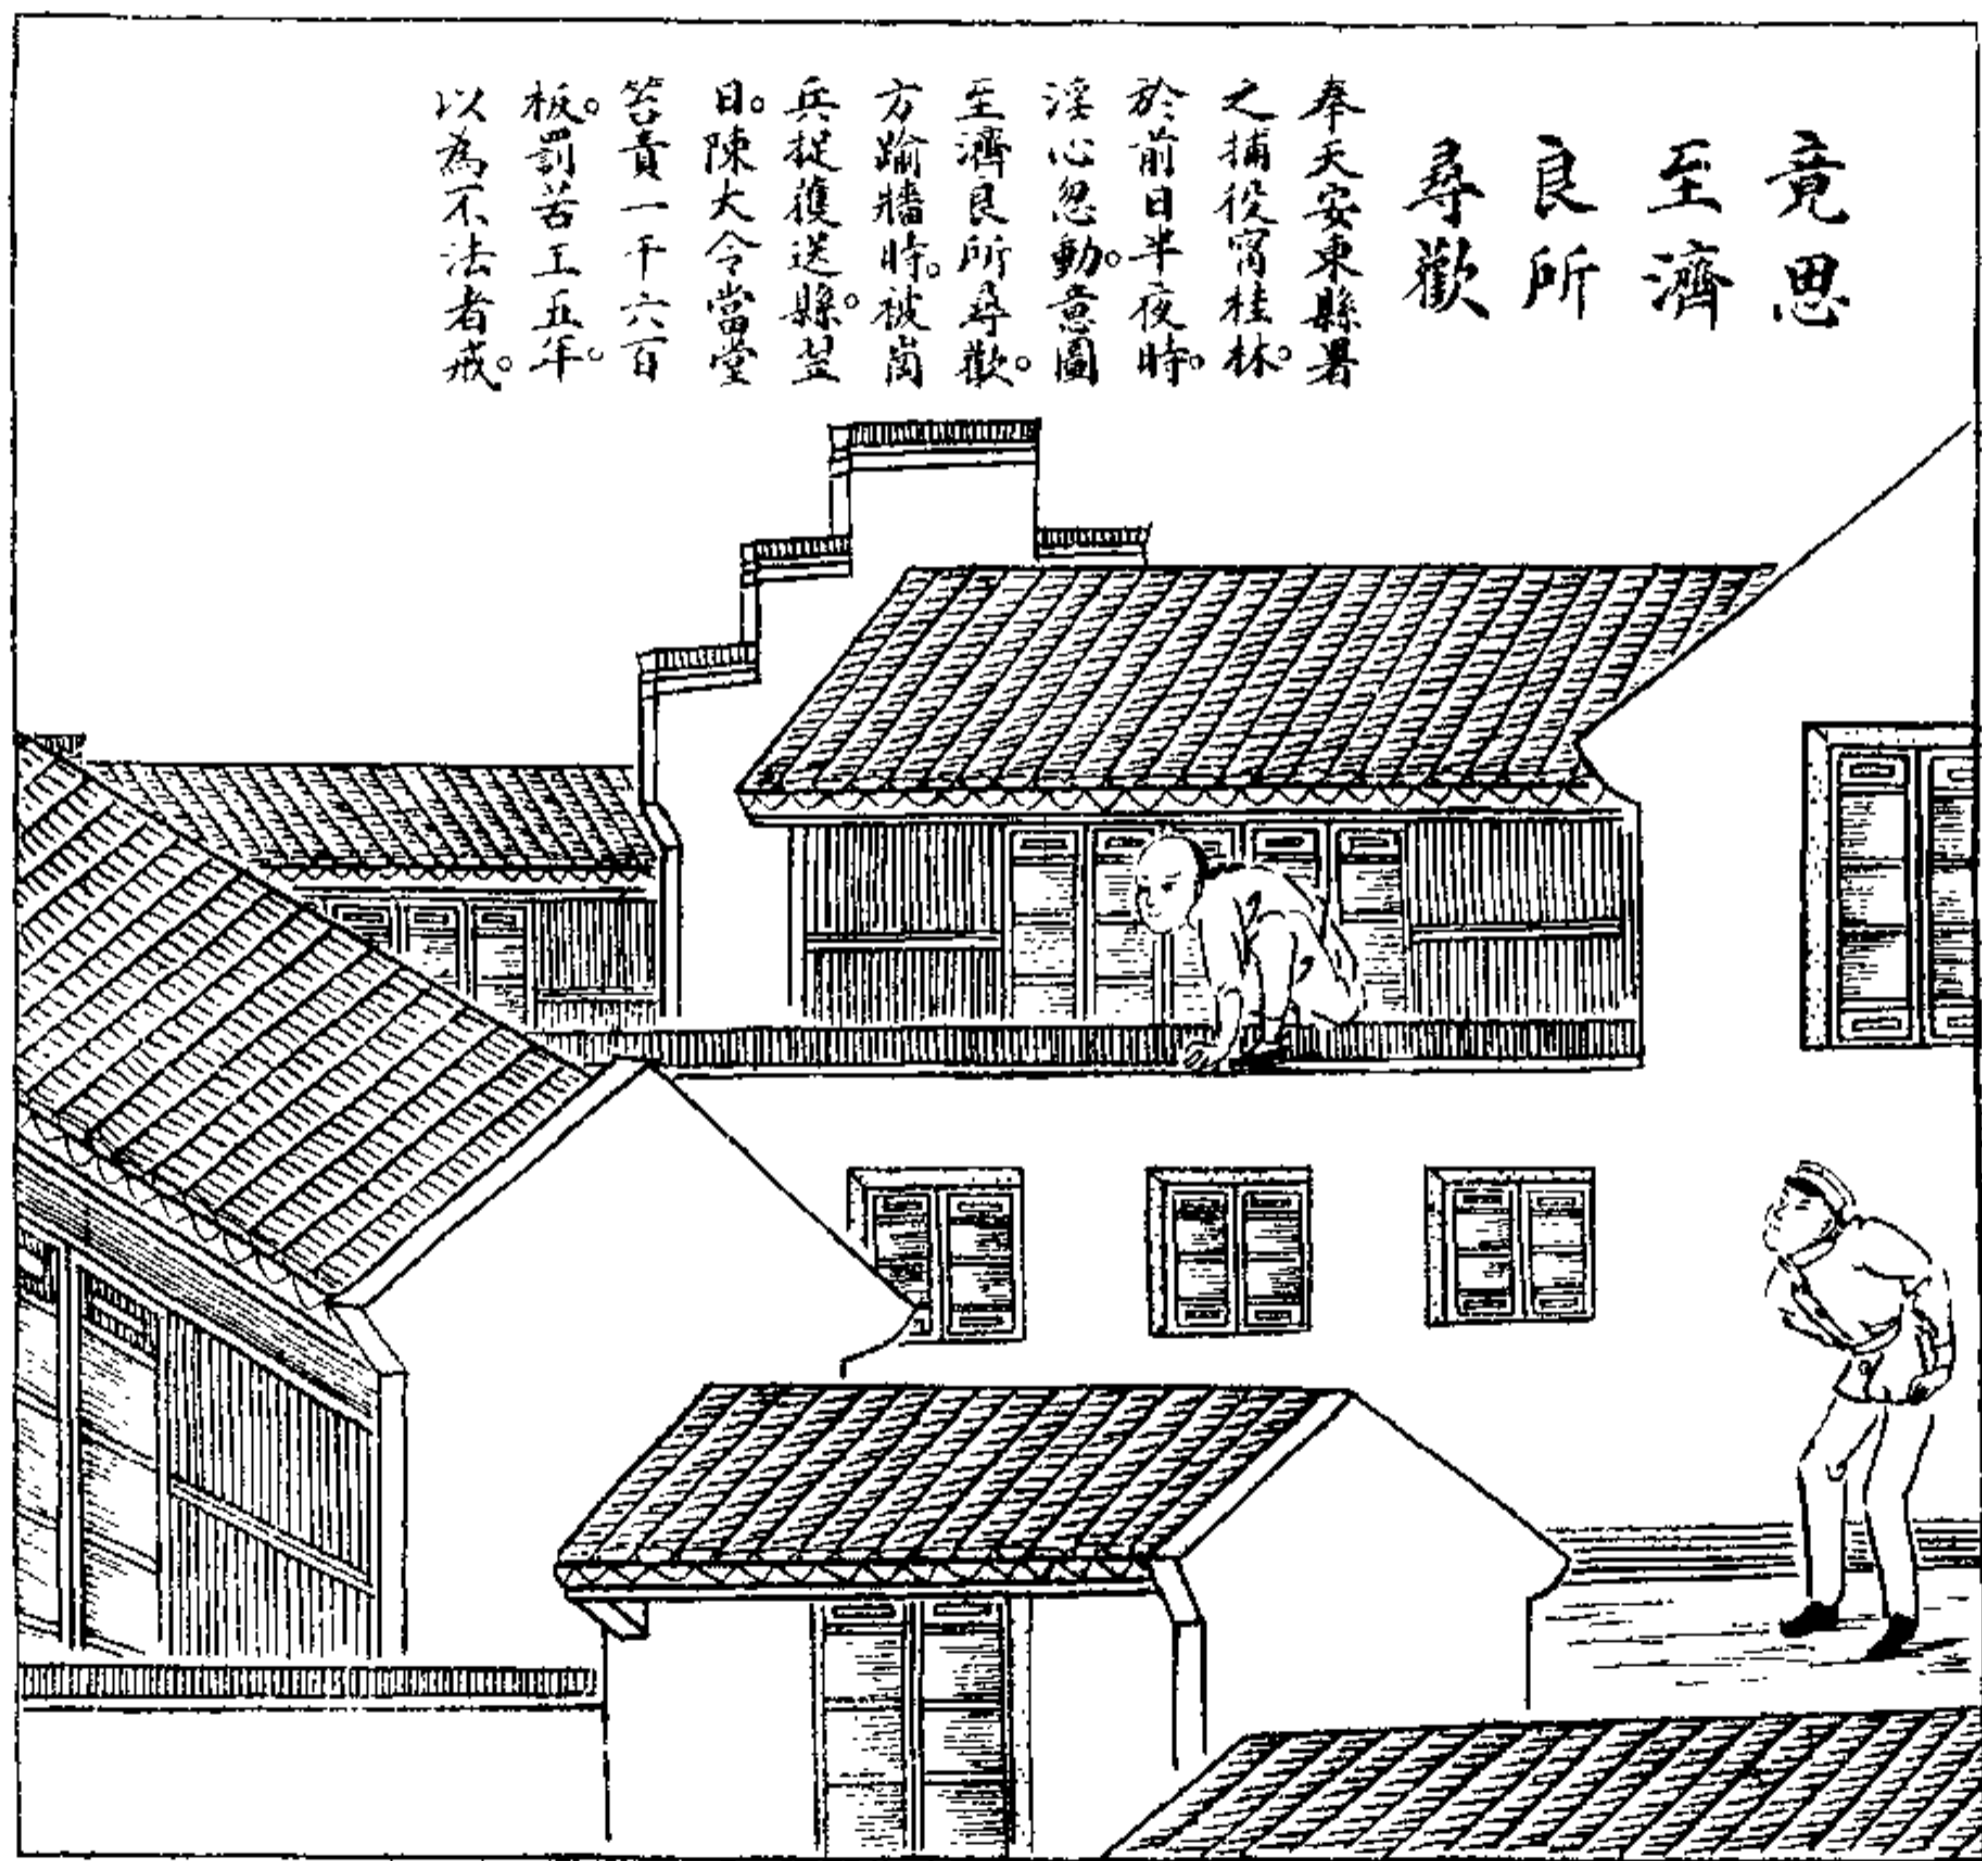 竟思
至濟
良所
尋歡
奉天安東縣署
之捕役甯桂林。
於前日半夜時。
淫心忽動。意圖
至濟良所尋歡。
方踰牆時。被崗
兵捉獲送縣。翌
日。陳大令當堂
笞責一千六百
板。罰苦工五年。
以為不法者戒。